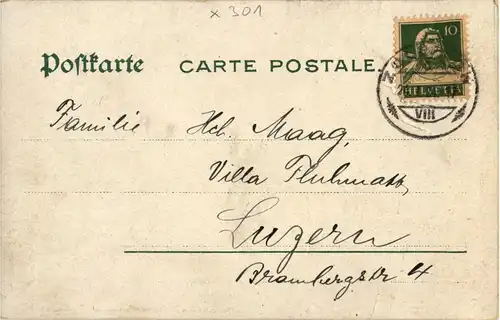 x 301
Postkarte CARTE POSTALE.
10
HELVETIA
VIII
Familie Hch. Maag,
Villa Fluhmatt,
Luzern
Brambergstr 4